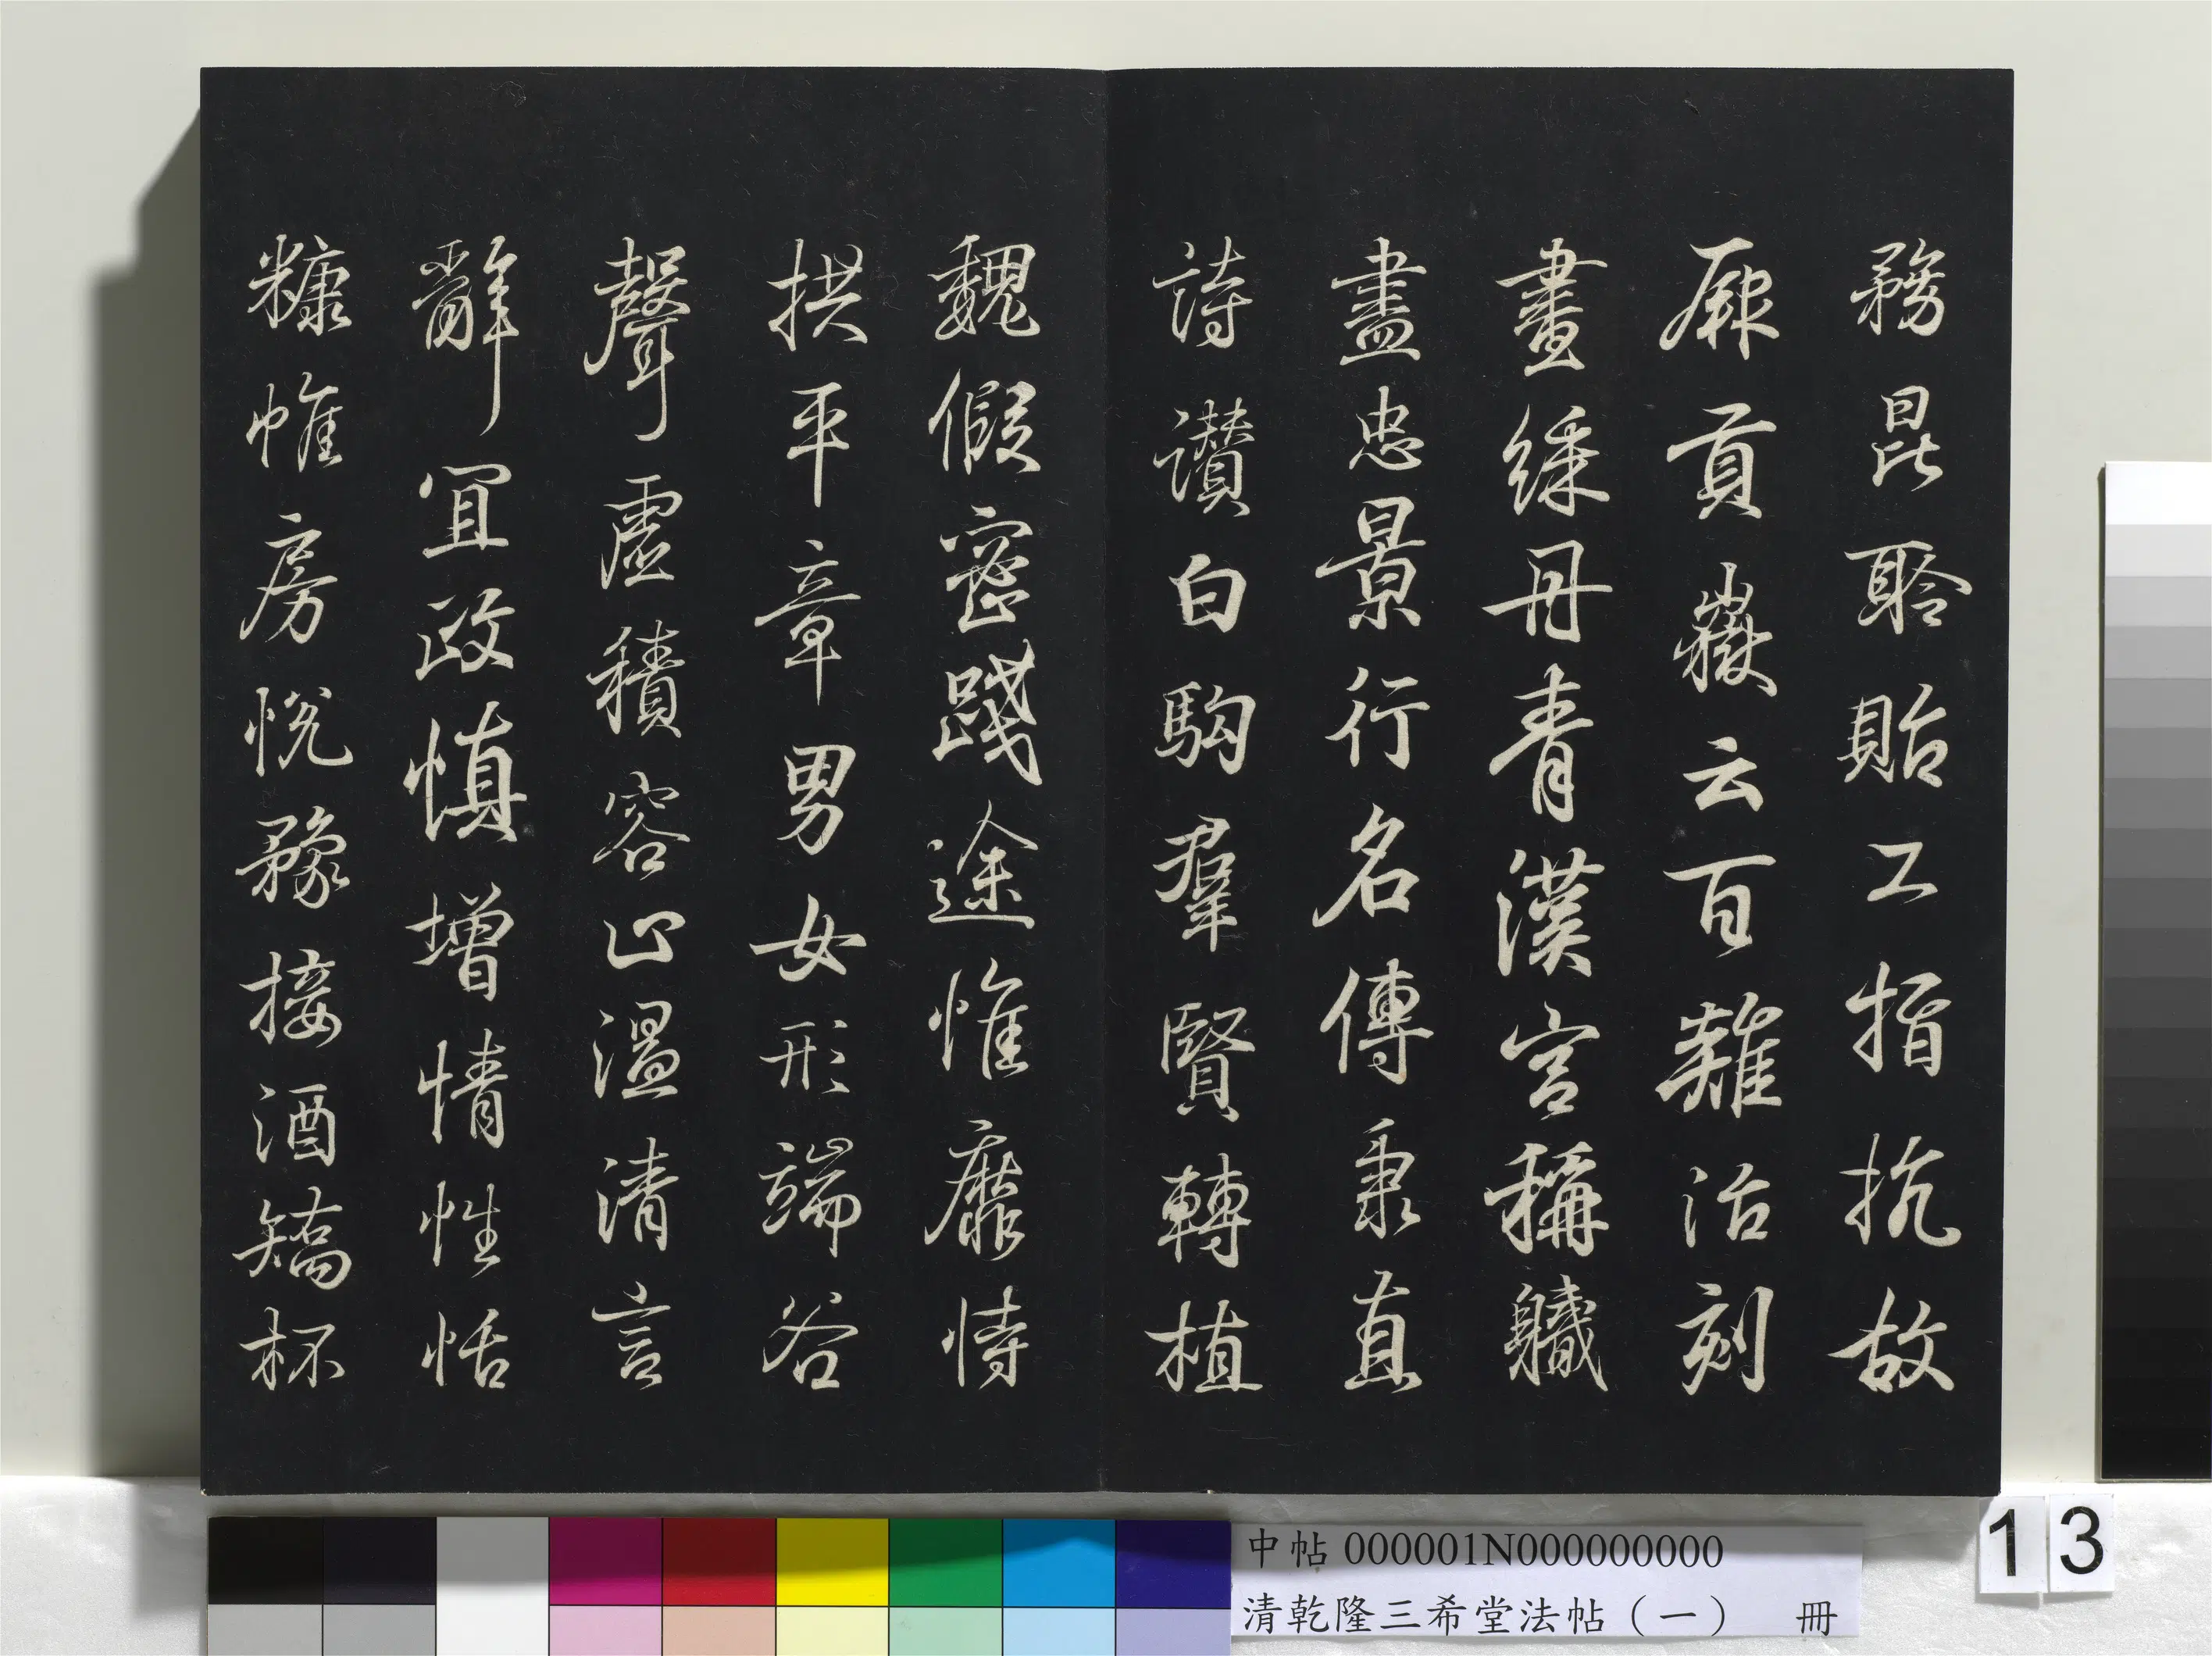 務昆聆貽工指抗故
厥貢嶽云百雜治刻
畫綵丹青漢宮稱職
盡忠景行名傳秉直
詩讚白駒羣賢轉植
魏假密踐途惟靡恃
拱平章男女形端谷
聲虛積容止溫清言
辭宜政慎增情性恬
糠帷房悅豫接酒矯杯
中帖 000001N000000000
清乾隆三希堂法帖（一） 冊
13